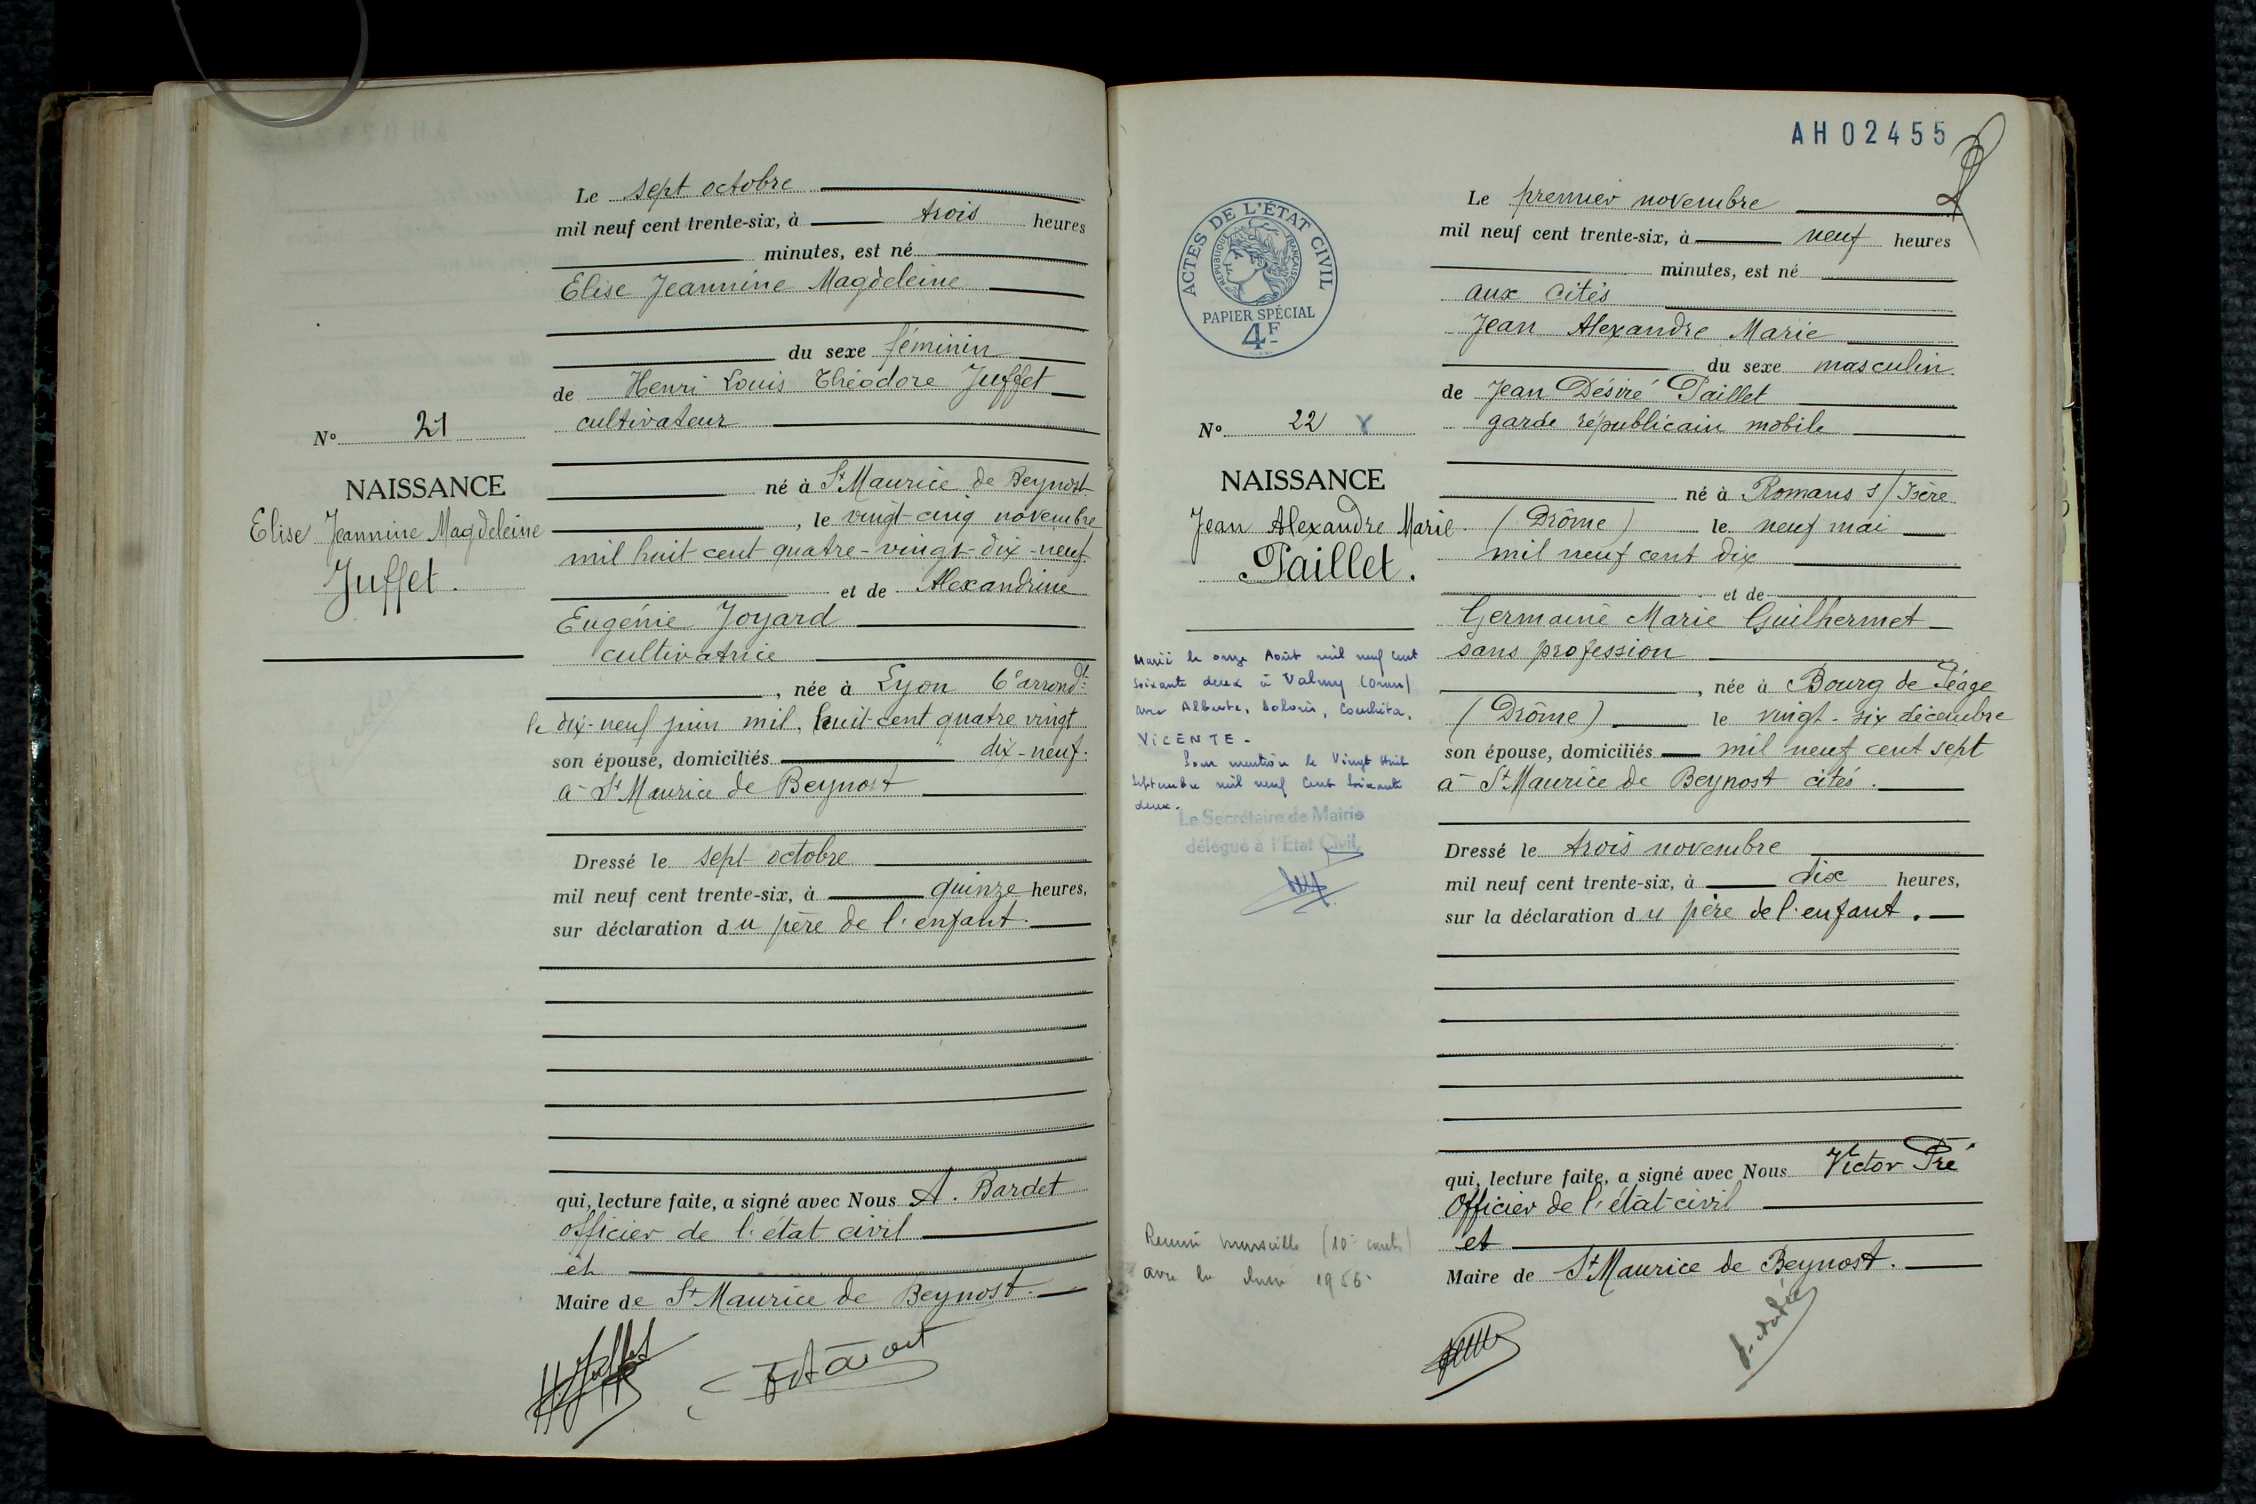 Le sept octobre
mil neuf cent trente-six, à trois heures
minutes, est né
Elise Jeannine Magdeleine
du sexe féminin
de Henri Louis Théodore Juffet
cultivateur
N° 21
NAISSANCE
Elise Jeannine Magdeleine
Juffet.
né à St Maurice de Beynost
, le vingt-cinq novembre
mil huit cent quatre-vingt-dix-neuf
et de Alexandrine
Eugénie Joyard
cultivatrice
, née à Lyon 6e arrondt
le dix-neuf juin mil huit cent quatre vingt
dix-neuf.
son épouse, domiciliés
à St Maurice de Beynost
Dressé le sept octobre
mil neuf cent trente-six, à quinze heures,
sur déclaration du père de l'enfant.
qui, lecture faite, a signé avec Nous A. Bardet
officier de l'état civil
et
Maire de St Maurice de Beynost.
AH02455
ACTES DE L'ÉTAT CIVIL
RÉPUBLIQUE FRANÇAISE
PAPIER SPÉCIAL
4F
Le premier novembre
mil neuf cent trente-six, à neuf heures
minutes, est né
aux cités
Jean Alexandre Marie
du sexe masculin.
de Jean Désiré Paillet
garde républicain mobile
N° 22
NAISSANCE
Jean Alexandre Marie
Paillet.
né à Romans s/Isère
(Drôme) le neuf mai
mil neuf cent dix
et de
Germaine Marie Guilhermet
sans profession
, née à Bourg de Péage
(Drôme) le vingt-six décembre
son épouse, domiciliés mil neuf cent sept
à St Maurice de Beynost cités.
Marié le onze Août mil neuf cent
soixante deux à Valmy (Oran)
avec Alberte, Dolorès, Conchita,
VICENTE.
Pour mention le Vingt Huit
Septembre mil neuf Cent Soixante
deux.
Le Secrétaire de Mairie
délégué à l'Etat Civil,
Dressé le trois novembre
mil neuf cent trente-six, à dix heures,
sur la déclaration du père de l'enfant.
qui, lecture faite, a signé avec Nous Victor Pré
Officier de l'état civil
et
Maire de St Maurice de Beynost.